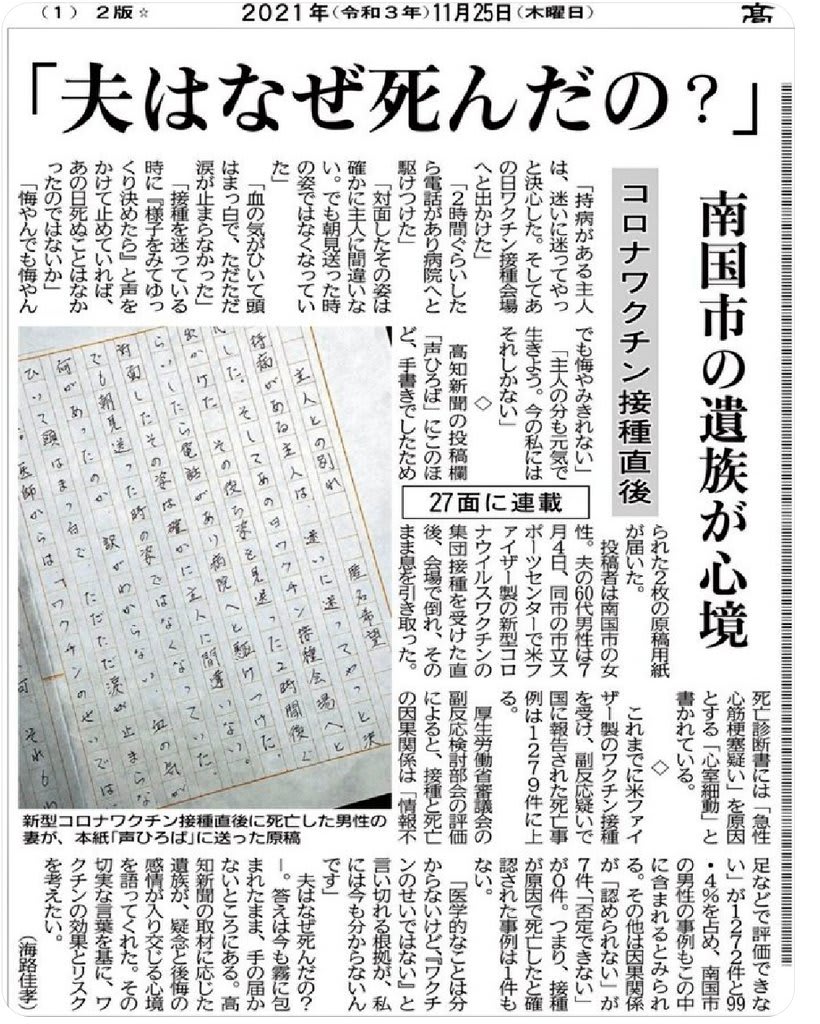 (1) 2版☆
2021年(令和3年)11月25日(木曜日)
高
「夫はなぜ死んだの?」
南国市の遺族が心境
コロナワクチン接種直後
「持病がある主人
は、迷いに迷ってやっ
と決心した。そしてあ
の日ワクチン接種会場
へと出かけた」
「2時間ぐらいした
ら電話があり病院へと
駆けつけた」
「対面したその姿は
確かに主人に間違いな
い。でも朝見送った時
の姿ではなくなってい
た」
「血の気がひいて頭
はまっ白で、ただただ
涙が止まらなかった」
「接種を迷っている
時に『様子をみてゆっ
くり決めたら』と声を
かけて止めていれば、
あの日死ぬことはなか
ったのではないか」
「悔やんでも悔やん
でも悔やみきれない」
「主人の分も元気で
生きよう。今の私には
それしかない」
◇
高知新聞の投稿欄
「声ひろば」にこのほ
ど、手書きでしたため
られた2枚の原稿用紙
が届いた。
投稿者は南国市の女
性。夫の60代男性は7
月4日、同市の市立ス
ポーツセンターで米フ
ァイザー製の新型コロ
ナウイルスワクチンの
集団接種を受けた直
後、会場で倒れ、その
まま息を引き取った。
27面に連載
死亡診断書には「急性
心筋梗塞疑い」を原因
とする「心室細動」と
書かれている。
◇
これまでに米ファイ
ザー製のワクチン接種
を受け、副反応疑いで
国に報告された死亡事
例は1279件に上
る。
厚生労働省審議会の
副反応検討部会の評価
によると、接種と死亡
の因果関係は「情報不
足などで評価できな
い」が1272件と99
・4%を占め、南国市
の男性の事例もこの中
に含まれるとみられ
る。その他は因果関係
が「認められない」が
7件、「否定できない」
が0件。つまり、接種
が原因で死亡したと確
認された事例は1件も
ない。
「医学的なことは分
からないけど、『ワクチ
ンのせいではない』と
言い切れる根拠が、私
には今も分からないん
です」
夫はなぜ死んだの?
ー。答えは今も霧に包
まれたまま、手の届か
ないところにある。高
知新聞の取材に応じた
遺族が、疑念と後悔の
感情が入り交じる心境
を語ってくれた。その
切実な言葉を基に、ワ
クチンの効果とリスク
を考えたい。
(海路佳孝)
主人との別れ 匿名希望
持病がある主人は、迷いに迷ってやっと決
心した。そしてあの日ワクチン接種会場へと
出かけた。その後ろ姿を見送った2時間後ぐ
らいしたら電話があり病院へと駆けつけた。
対面したその姿は確かに主人に間違いない。
でも朝見送った時の姿ではなくなっていた。
何があったのか、訳がわからない。血の気が
ひいて頭はまっ白で、ただただ涙が止まらな
医師からは「ワクチンのせいでは
新型コロナワクチン接種直後に死亡した男性の
妻が、本紙「声ひろば」に送った原稿